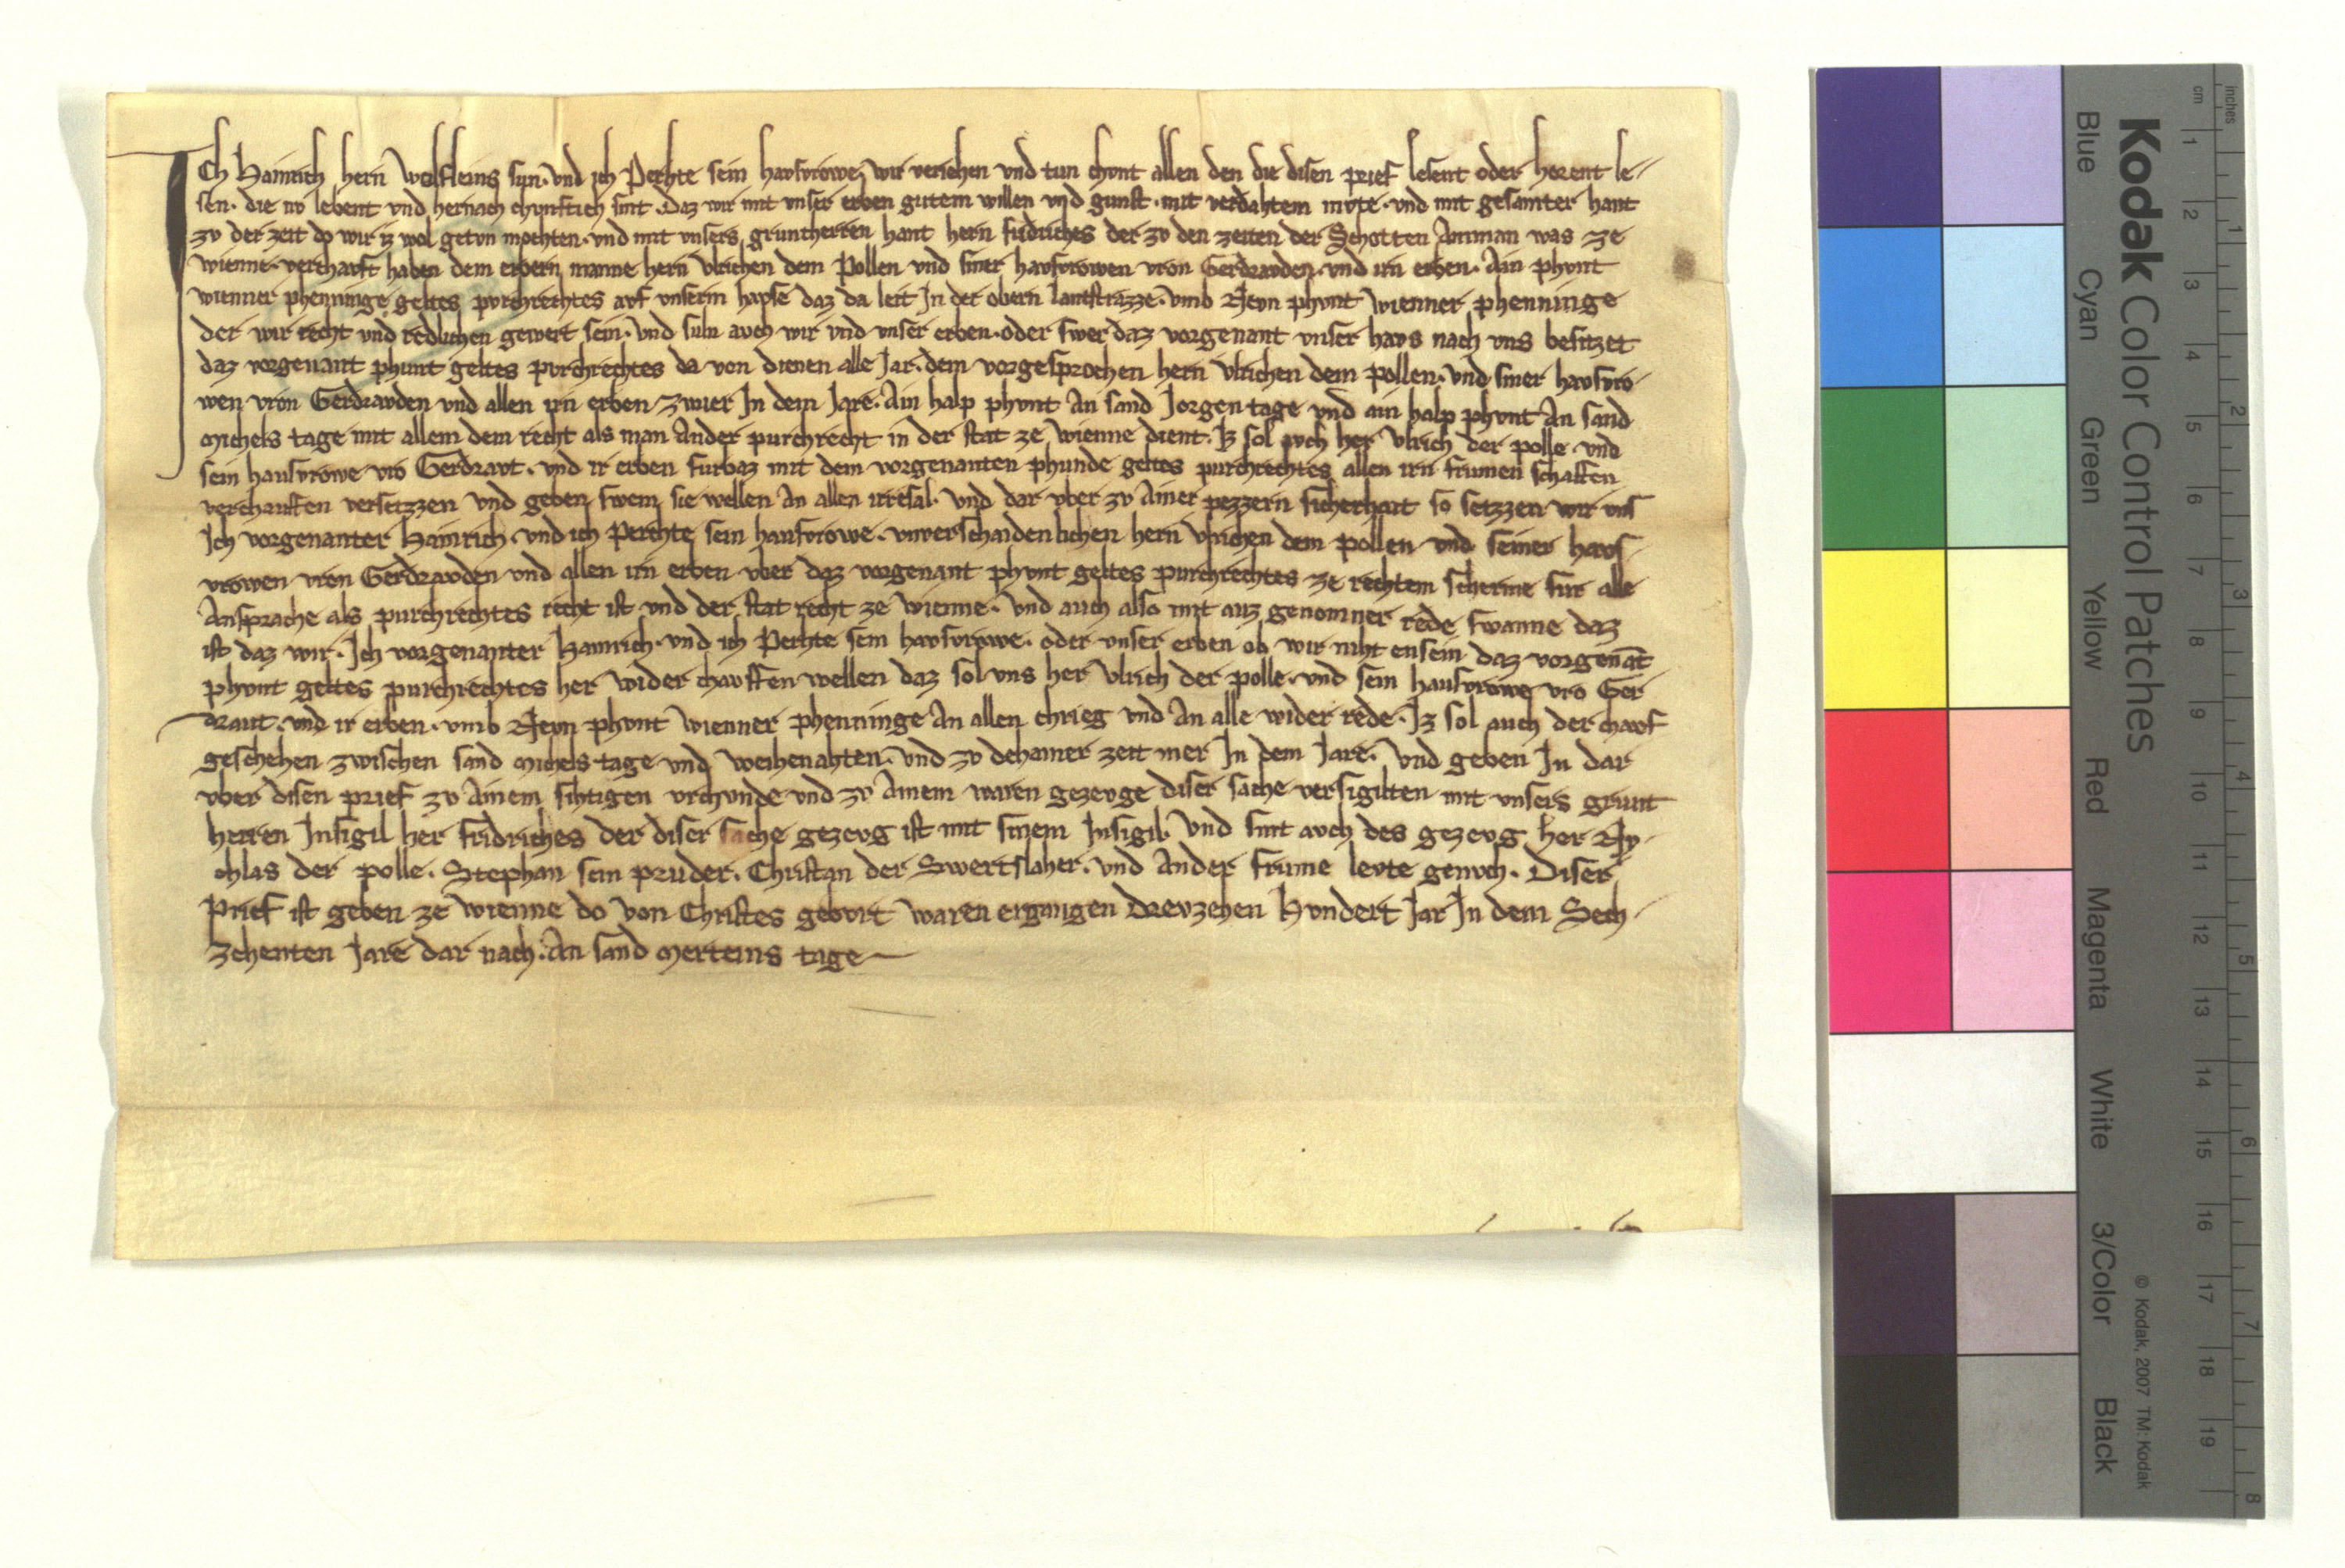 Ich Hainrich hern Wolfleins sun. vnd ich Perhte sein havsvrowe, wir veriehen vnd tun chvnt allen den die disen prief lesent oder horent le-
sen. die nv lebent vnd hernach chvnftich sint. Daz wir mit vnser erben gutem willen vnd gunst. mit verdahtem mvte. vnd mit gesamter hant
zv der zeit do wir iz wol getvn mochten. vnd mit vnsers gruntherren hant hern fridriches der zv den zeiten der Schotten Amman was ze
wienne. verchavft haben dem erbern manne hern Vlrichen dem Pollen vnd siner havsvrowen vron Gerdravden. vnd irn erben. Ain phvnt
wienner phenninge geltes pvrchrechtes avf vnserm havse daz da leit In der obern lantstrazze. vmb Nevn phvnt wienner phenninge
der wir recht vnd redlichen gewert sein. vnd suln avch wir vnd vnser erben. oder swer daz vorgenant vnser havs nach vns besitzet
daz vorgenant phunt geltes pvrchrechtes da von dienen alle Jar. dem vorgesprochen hern Vlrichen dem pollen. vnd siner havsvro-
wen vron Gerdravden vnd allen irn erben zwier In dem Jare. Ain halp phvnt An sand Jorgen tage vnd ain halp phvnt An sand
Michels tage mit allem dem recht als man Ander purchrecht in der stat ze wienne dient. Iz sol avch her Vlrich der polle vnd
sein hausvrowe vro Gerdravt. vnd ir erben furbaz mit dem vorgenanten phunde geltes purchrechtes allen irn frumen schaffen
verchauffen versetzzen vnd geben swem sie wellen An allen irresal. vnd dar vber zv Ainer pezzern sicherhait so setzzen wir vns
Ich vorgenanter Hainrich. vnd ich Perchte sein hausvrowe. vnverschaidenlichen hern Vlrichen dem pollen vnd seiner havs-
vrowen vron Gerdravden vnd allen irn erben vber daz vorgenant phvnt geltes purchrechtes ze rechtem scherme fur alle
Ansprache als purchrechtes recht ist vnd der stat recht ze wienne. vnd auch also mit auz genomner rede swanne daz
ist daz wir. Ich vorgenanter Hainrich. vnd ich Perhte sein havsvrowe. oder vnser erben ob wir niht ensein daz vorgenāt
phvnt geltes purchrechtes her wider chavffen wellen daz sol vns her Vlrich der polle. vnd sein hausvrowe vro Ger-
draut. vnd ir erben. vmb Nevn phvnt wienner phenninge An allen chrieg vnd An alle wider rede. Iz sol auch der chavf
geschehen zwischen sand Michels tage vnd weihenahten. vnd zv dehainer zeit mer In dem Jare. vnd geben In dar
vber disen prief zv Ainem sihtigen vrchvnde vnd zv Ainem waren gezevge diser sache versigilten mit vnsers grunt
herren Insigil her fridriches der diser sache gezevg ist mit sinem Insigil. vnd sint avch des gezevg her Ny-
chlas der polle. Stephan sein pruder. Christan der Swertslaher. vnd Ander frume levte genvch. Diser
Prief ist geben ze wienne do von Christes gebvrt waren ergangen Drevzehen Hvndert Jar In dem Sech-
zehenten Jare dar nach. An sand Merteins tage
Kodak Color Control Patches
Blue Cyan Green Yellow Red Magenta White 3/Color Black
© Kodak, 2007 TM: Kodak
cm 1 2 3 4 5 6 7 8 9 10 11 12 13 14 15 16 17 18 19
inches 1 2 3 4 5 6 7 8